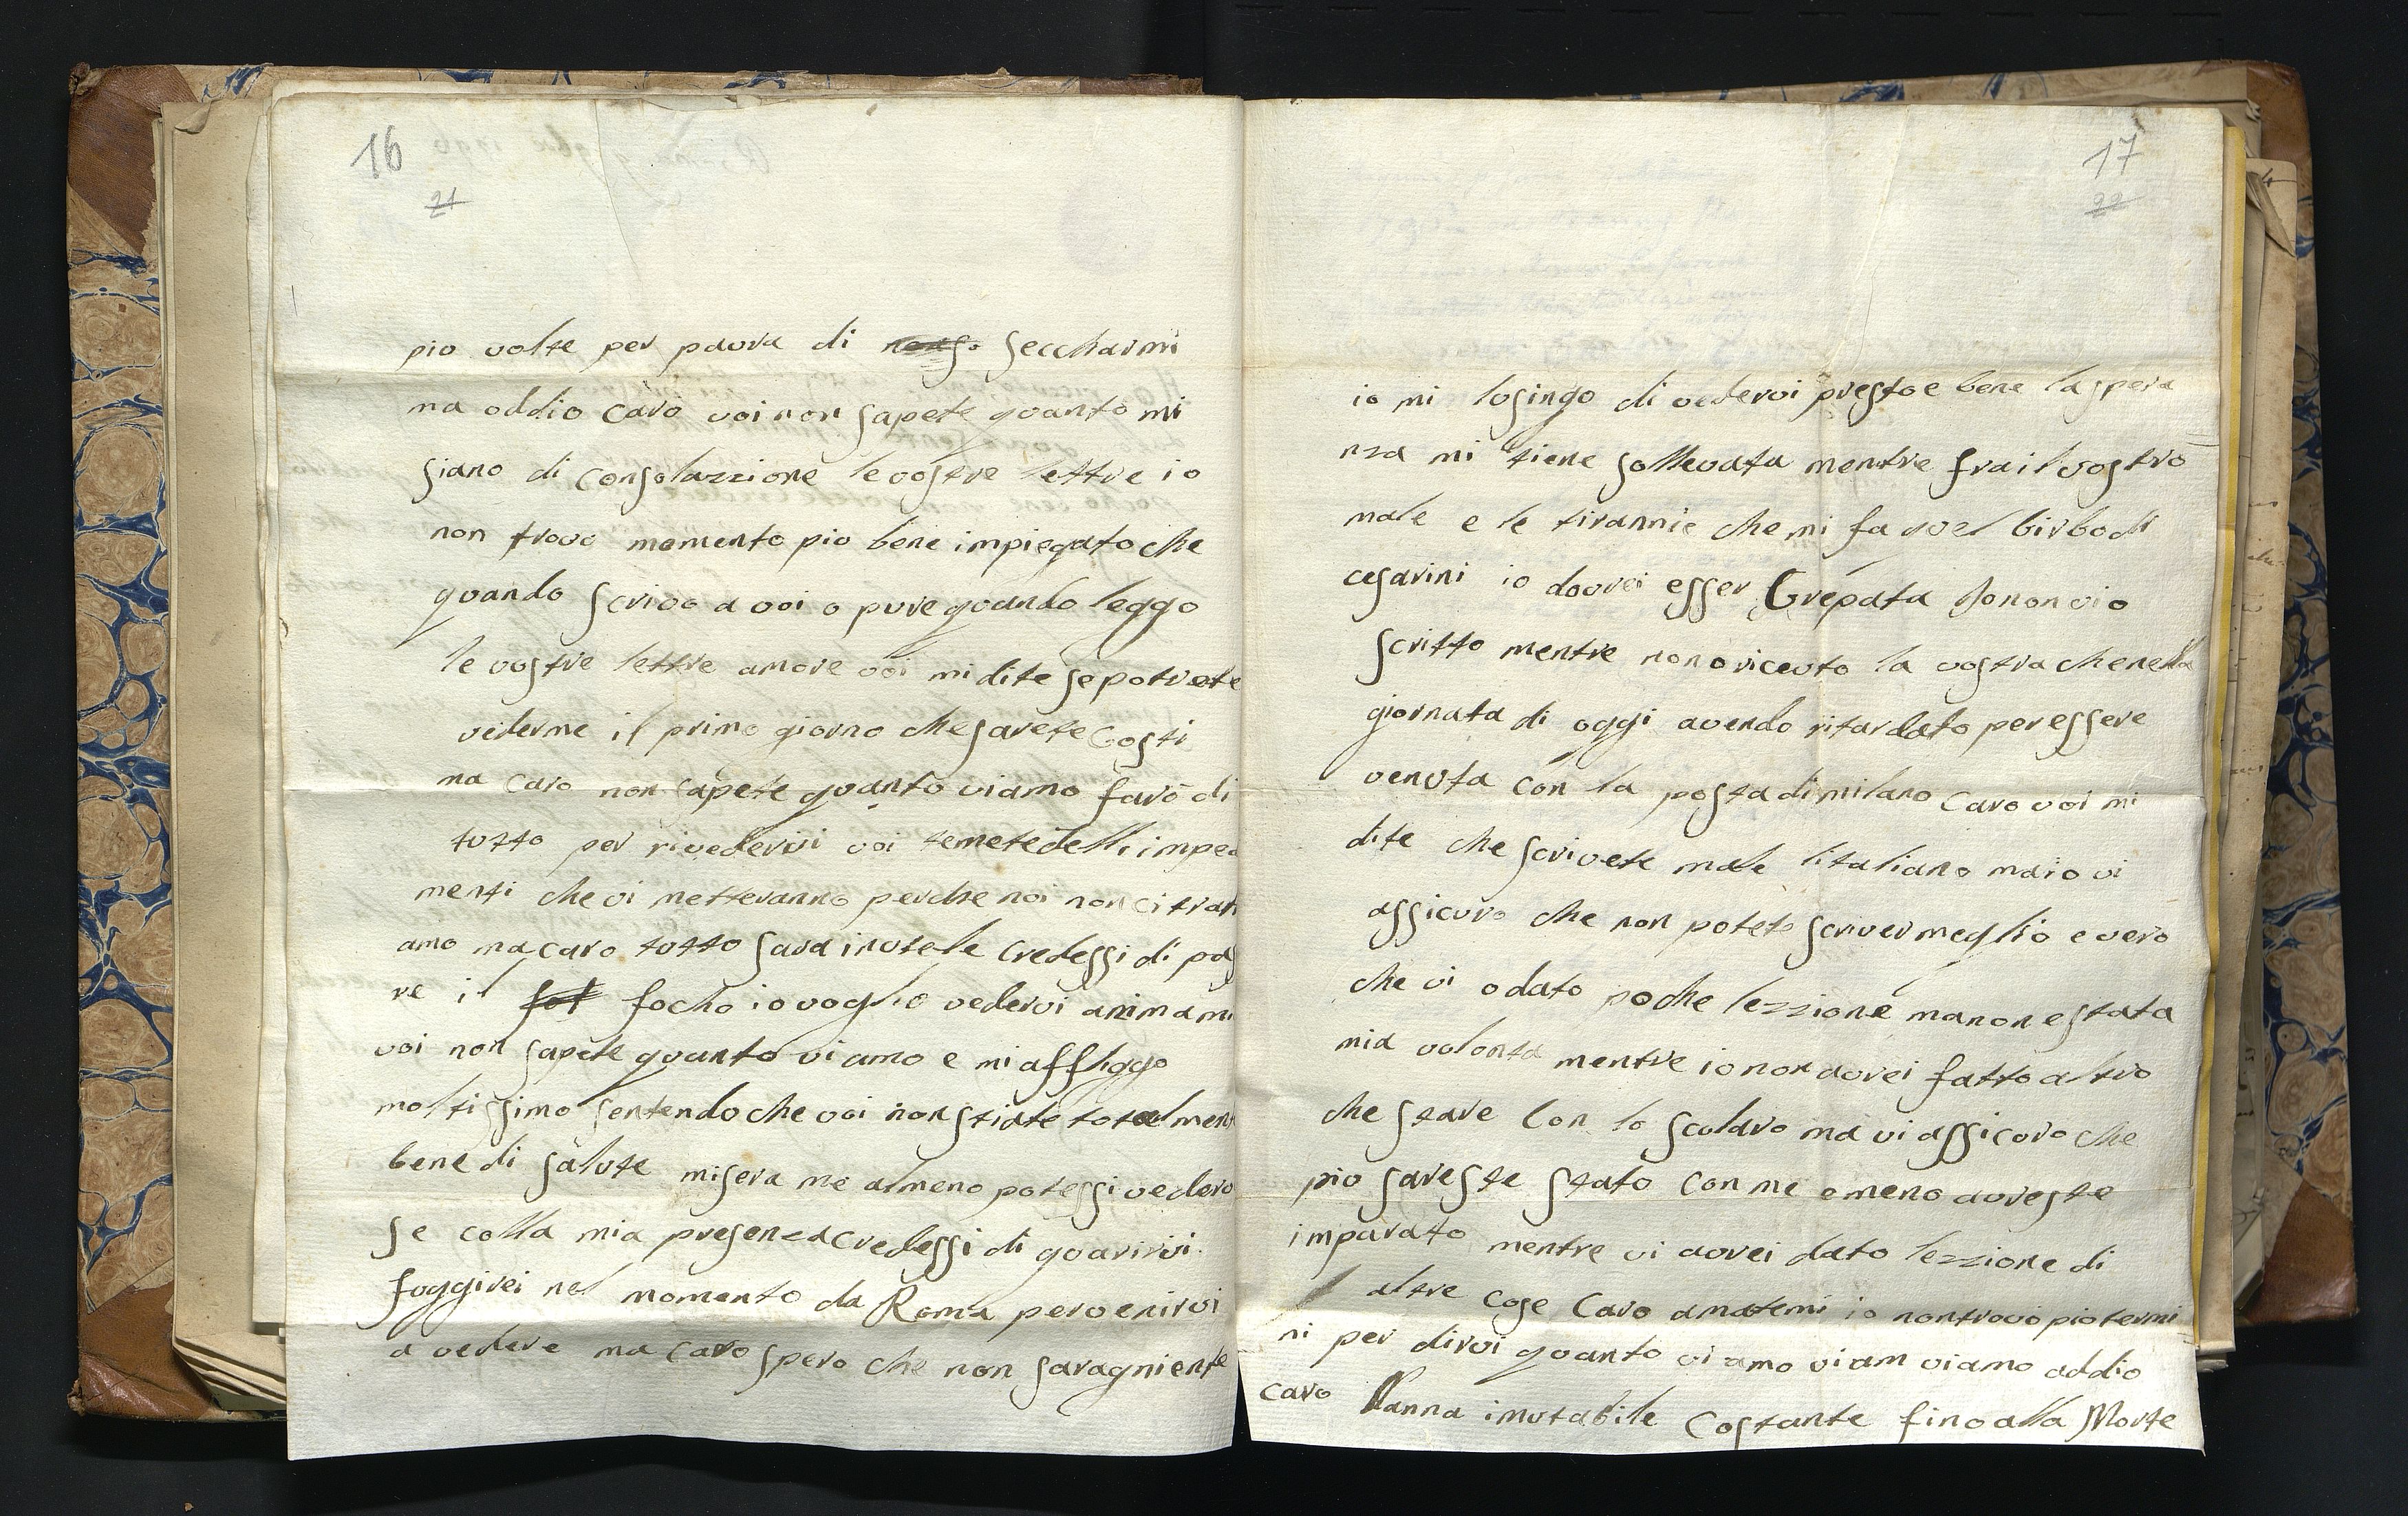 16
21
pio volte per paura di seccharmi
ma oddio caro voi non sapete quanto mi
siano di consolazzione le vostre lettre io
non trovo momento pio bene impiegato che
quando scrivo a voi o pure quando leggo
le vostre lettre amore voi mi dite se potrete
vederme il primo giorno che sarete Costi
ma caro non capete quanto vi amo farò di
tutto per rivedervi voi temete delli impe
menti che vi metteranno perche noi non ci tratt
amo ma caro tutto sara inutele credessi di pas
re il focho io voglio vedervi anima mi
voi non sapete quanto vi amo e mi affliggo
moltissimo sentendo che voi non stiate totalment
bene di salute misera me almeno potessi vedervi
se colla mia presenza credessi di guarirvi
fuggirei nel momento da Roma per venirvi
a vedere ma caro spero che non saragniente
17
22
io mi lusingo di vedervi presto e bene la spera
nza mi tiene sollevata mentre fra il vostro
male e le tirannie che mi fa quel birbo di
cesarini io dovrei esser Crepata Jo non vi o
scritto mentre non o riceuto la vostra che nella
giornata di oggi avendo ritardato per essere
venuta con la posta di milano caro voi mi
dite che scrivete male litaliano ma io vi
assicuro che non potete scriver meglio e vero
che vi o dato poche lezzione ma non e stata
mia volonta mentre io non avrei fatto altro
che stare Con lo scolaro ma vi assicuro che
pio sareste stato con me e meno avreste
imparato mentre vi avrei dato lezzione di
altre cose Caro amatemi io non trovo pio termi
ni per dirvi quanto vi amo vi am vi amo addio
caro Nanna imutabile Costante fino alla Morte